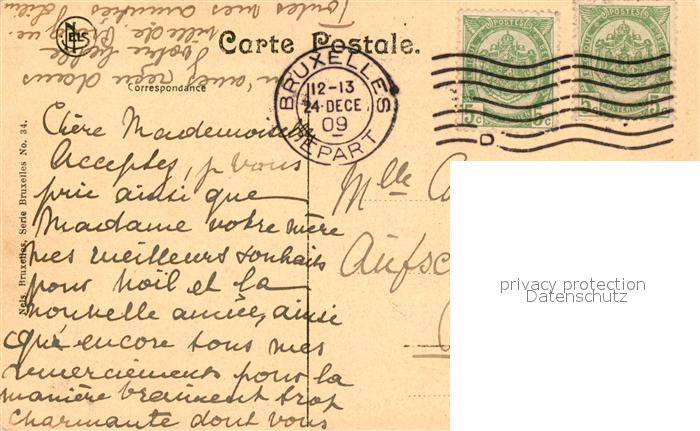 Carte Postale.
Correspondance
NELS
Nels, Bruxelles, Serie Bruxelles No. 34.
BRUXELLES
12-13
24 DECE
09
DEPART
POSTES
5c
5c
POSTERIJEN
POSTES
5c
5c
D
Chère Mademoiselle
Acceptez, je vous
prie ainsi que
Madame votre mère
mes meilleurs souhaits
pour Noël et la
nouvelle année, ainsi
que encore tous mes
remerciements pour la
manière vraiment trop
charmante dont vous
reçu dans
votre belle
ville de
Toutes mes amitiés
Mlle
Aufsc
privacy protection
Datenschutz